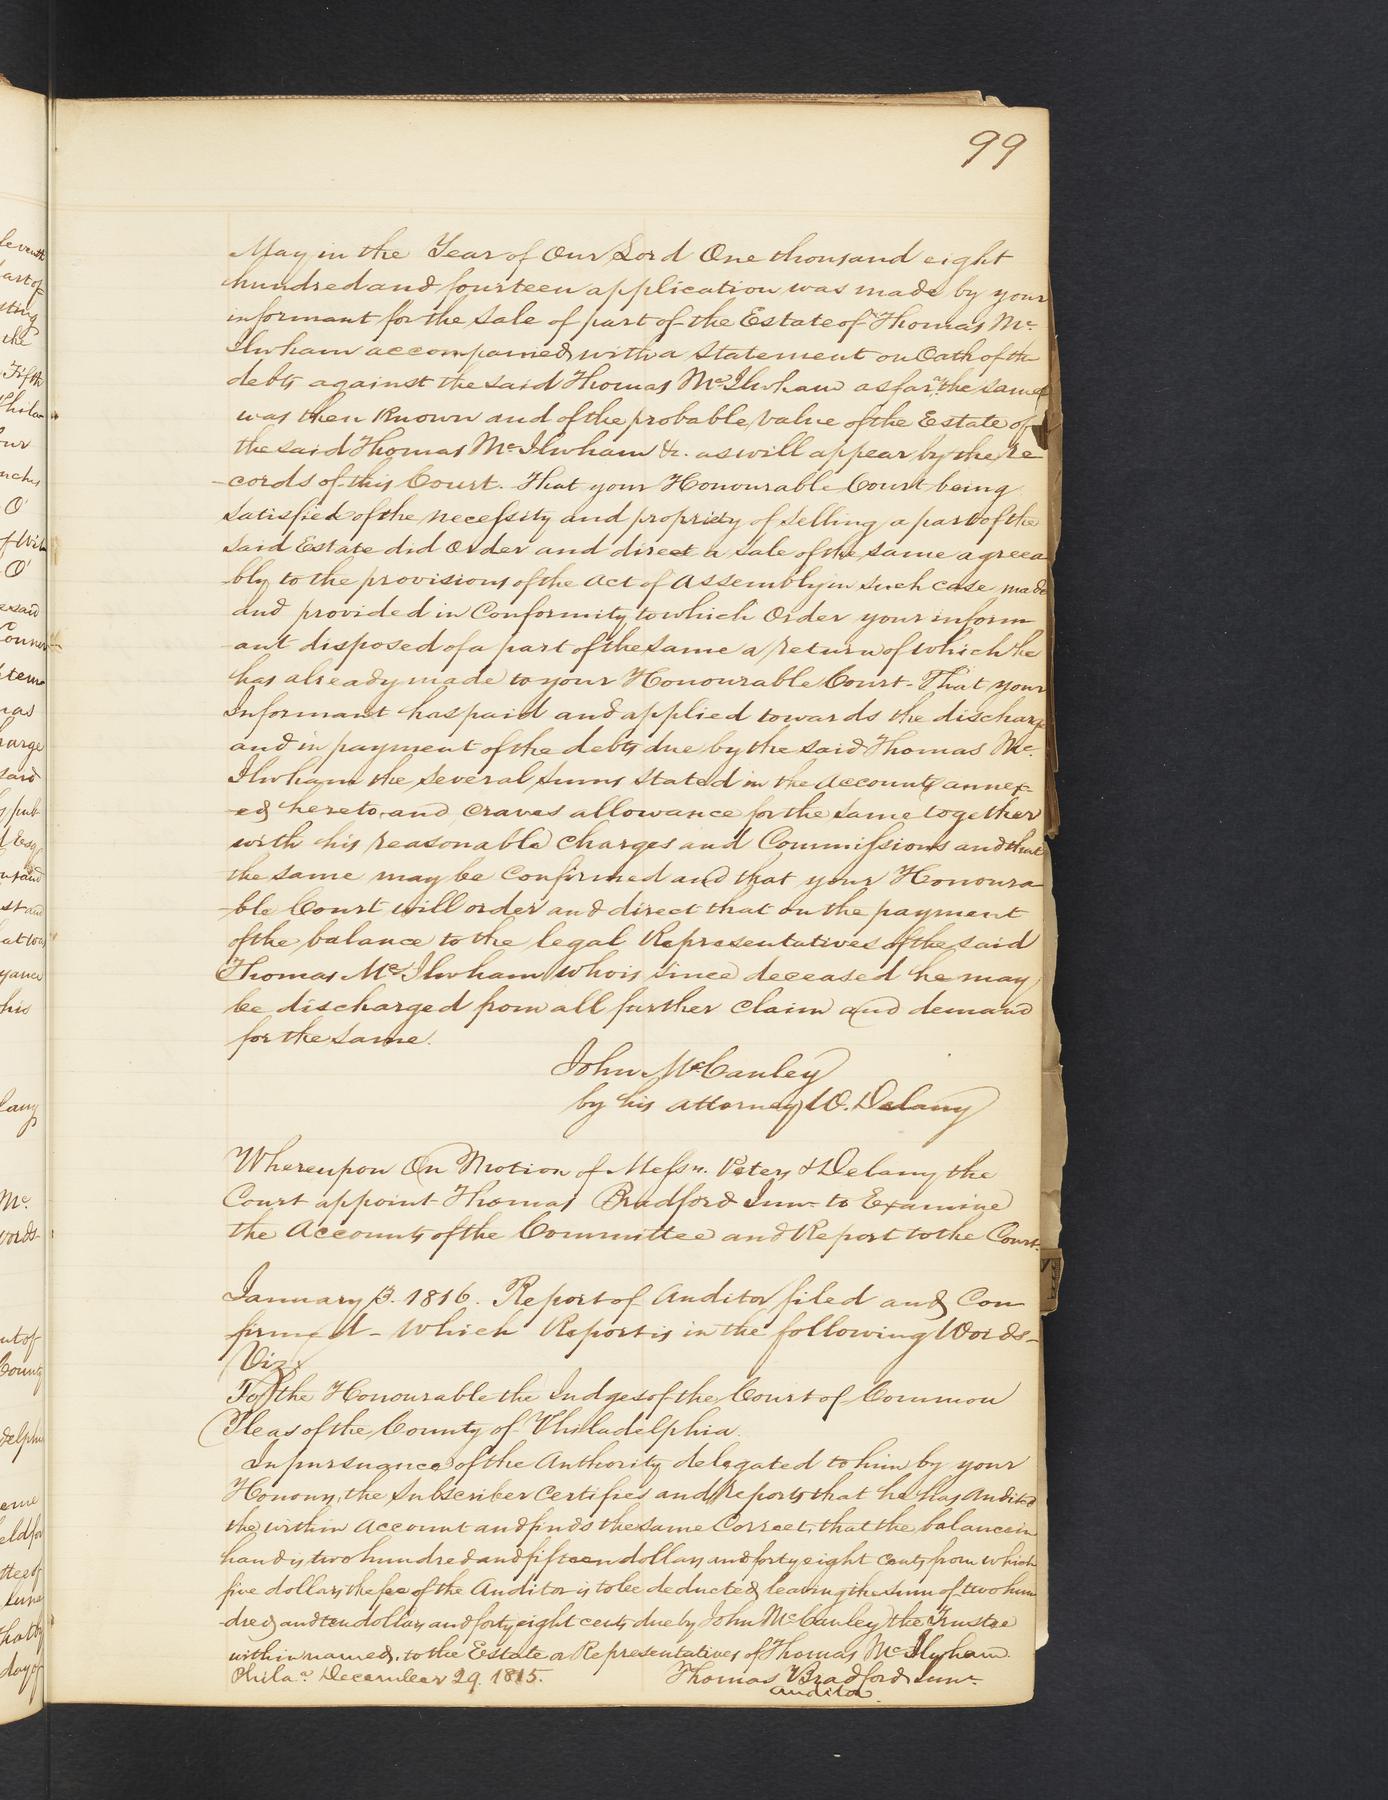 99
May in the Year of Our Lord One thousand eight
hundred and fourteen application was made by your
informant for the Sale of part of the Estate of Thomas Mc
Ilwham accompanied with a Statement on Oath of the
debts against the said Thomas McIlwham as far as the same
was then Known and of the probable Value of the Estate of
the said Thomas McIlwham &c. as will appear by the Re
cords of this Court. That your Honourable Court being
Satisfied of the necessity and propriety of Selling a part of the
Said Estate did Order and direct a Sale of the Same agreea
bly to the provisions of the Act of Assembly in Such case made
and provided in Conformity to which Order your inform
ant disposed of a part of the Same a return of which he
has already made to your Honourable Court - That your
Informant has paid and applied towards the discharge
and in payment of the debts due by the said Thomas Mc
Ilwham the Several Sums Stated in the Accounts annex-
ed hereto and craves allowance for the Same together
with his reasonable charges and Commissions and that
the Same may be Confirmed and that your Honoura
ble Court will order and direct that on the payment
of the balance to the legal Representatives of the said
Thomas McIlwham who is Since deceased he may
be discharged from all further Claim and demand
for the Same.
John McCauley
by his attorney W. Delany
Whereupon On Motion of Messrs. Peters & Delany the
Court appoint Thomas Bradford Junr. to Examine
the Accounts of the Committee and Report to the Court.
January 3. 1816. Report of Auditor filed and Con
firmed - Which Report is in the following Words -
Viz:
To the Honourable the Judges of the Court of Common
Pleas of the County of Philadelphia.
In pursuance of the Authority delegated to him by your
Honours, the Subscriber Certifies and Reports that he has Audited
the within Account and finds the same Correct, that the balance in
hand is two hundred and fifteen dollars and forty eight Cents, from which
five dollars the fee of the Auditor is to be deducted leaving the Sum of two hun
dred and ten dollars and forty eight cents due by John McCauley the Trustee
within named, to the Estate or Representatives of Thomas McIlwham.
Phila. December 29. 1815.
Thomas Bradford Junr.
Auditor.